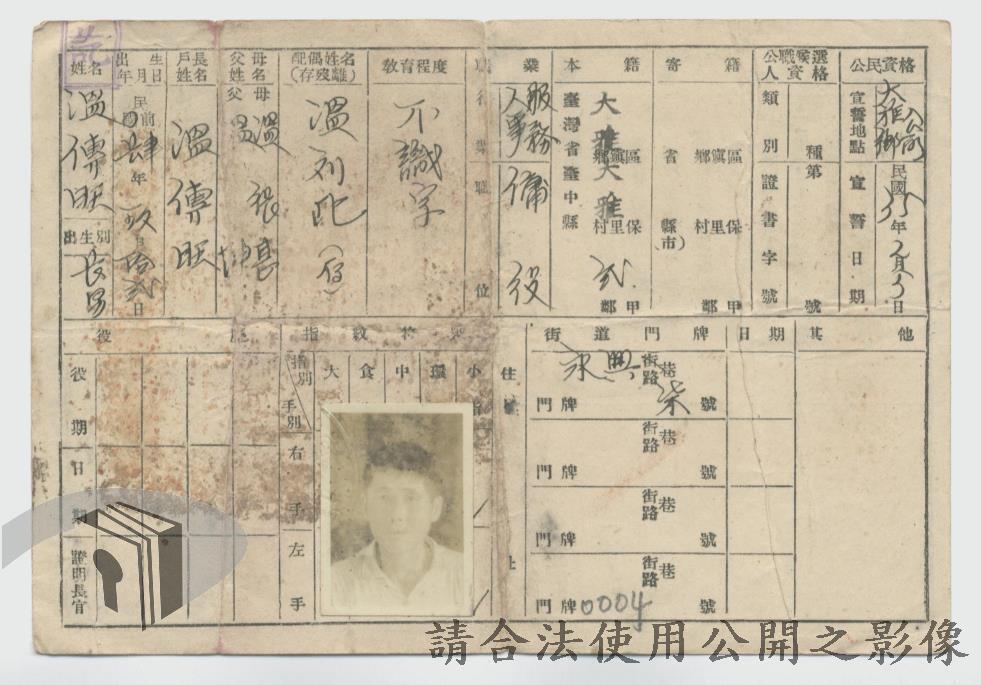 姓名
溫傳旺
出生別
長男
出生年月日
民國前肆年玖月拾弍日
戶長姓名
溫傳旺
父母姓名
父
母
溫
配偶姓名(存歿離)
溫刘
教育程度
不識字
職業
人事服務
傭役
本籍
臺灣省臺中縣
大雅
區鎮鄉
大雅
保里村
弍
甲鄰
寄籍
省
縣(市)
區鎮鄉
保里村
甲鄰
公職候選人資格
類別
種
證書字號
第
號
公民資格
宣誓地點
大雅鄉公所
宣誓日期
民國35年2月5日
役
役期
日期
證明長官
指
指別
手別
大食中環小
右手
左手
住
址
街道門牌
日期
其他
永興街路巷
門牌柒號
街路巷
門牌號
街路巷
門牌號
街路巷
門牌號
0004
請合法使用公開之影像